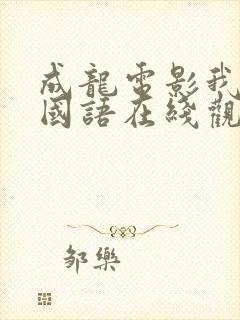 成龍電影我
國語在綫觀
邹樂